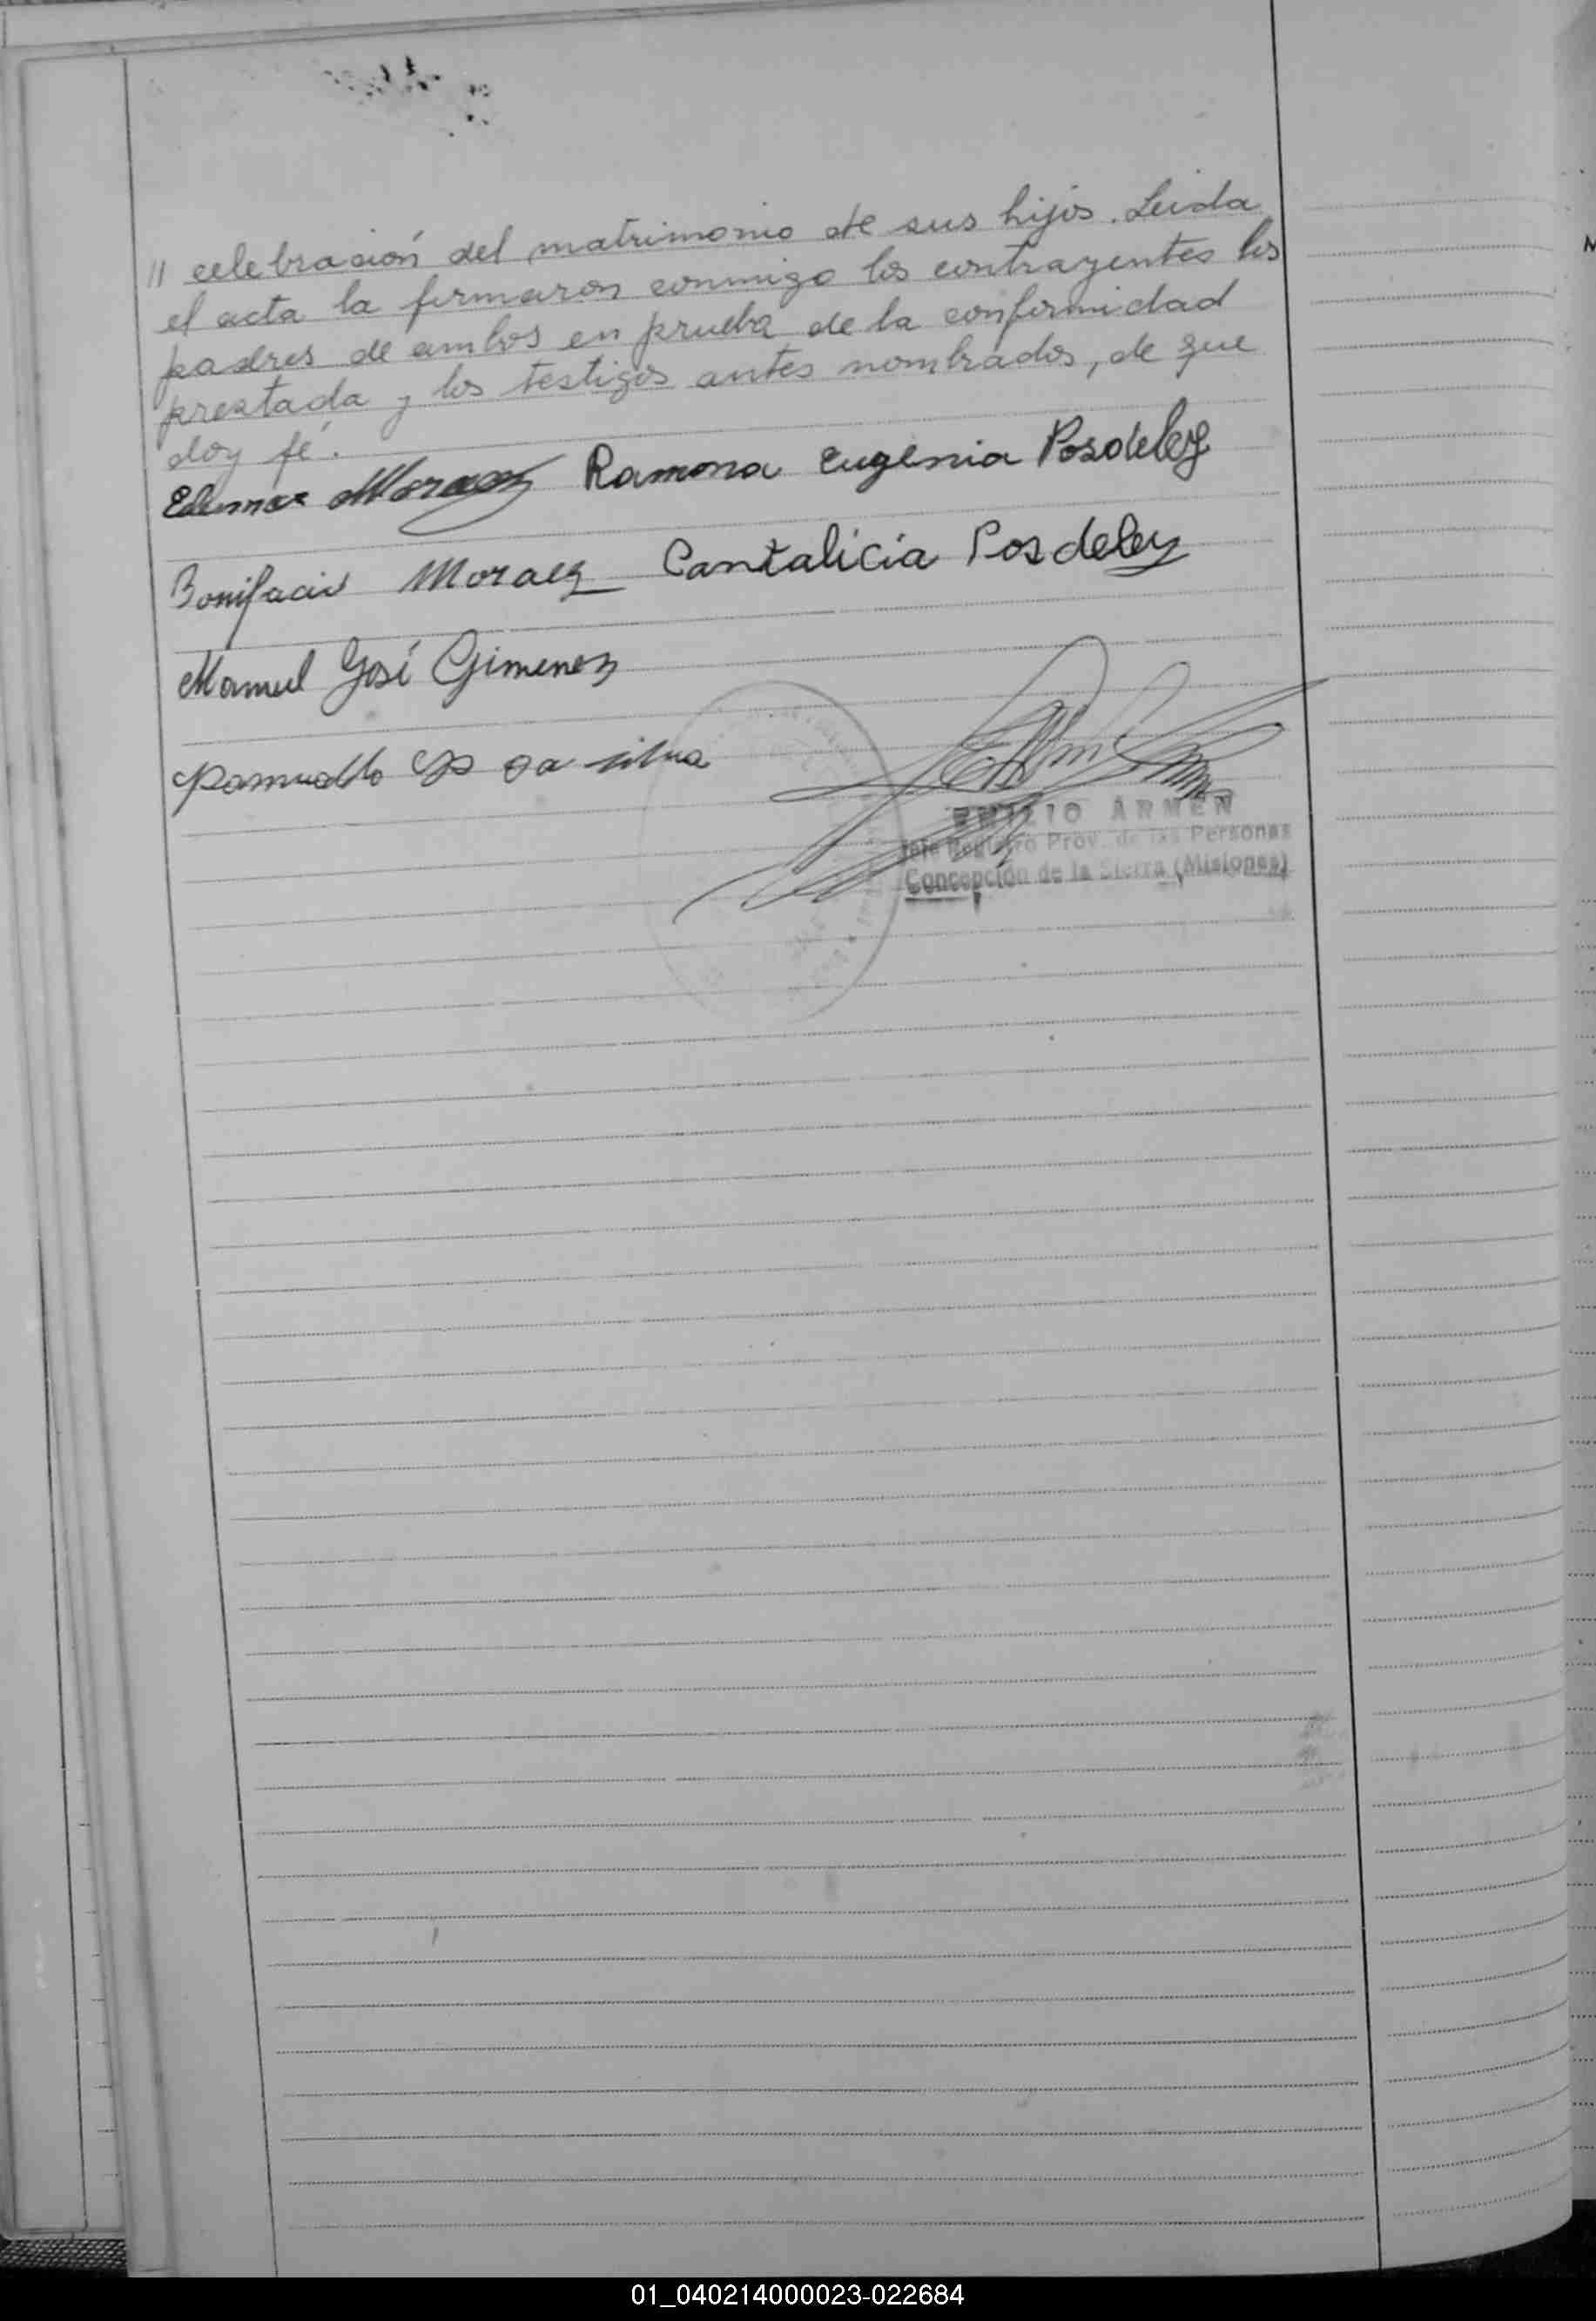 // celebración del matrimonio de sus hijos. Leida
el acta la firmaron conmigo los contrayentes los
padres de ambos en prueba de la conformidad
prestada y los testigos antes nombrados, de que
doy fé.
Ramona Eugenia Posdeley
Bonifacio Moraez Cantalicia Posdeley
Manuel José Gimenez
da silva
EMILIO ARMEN
Jefe Registro Prov. de las Personas
Concepción de la Sierra (Misiones)
01_040214000023-022684